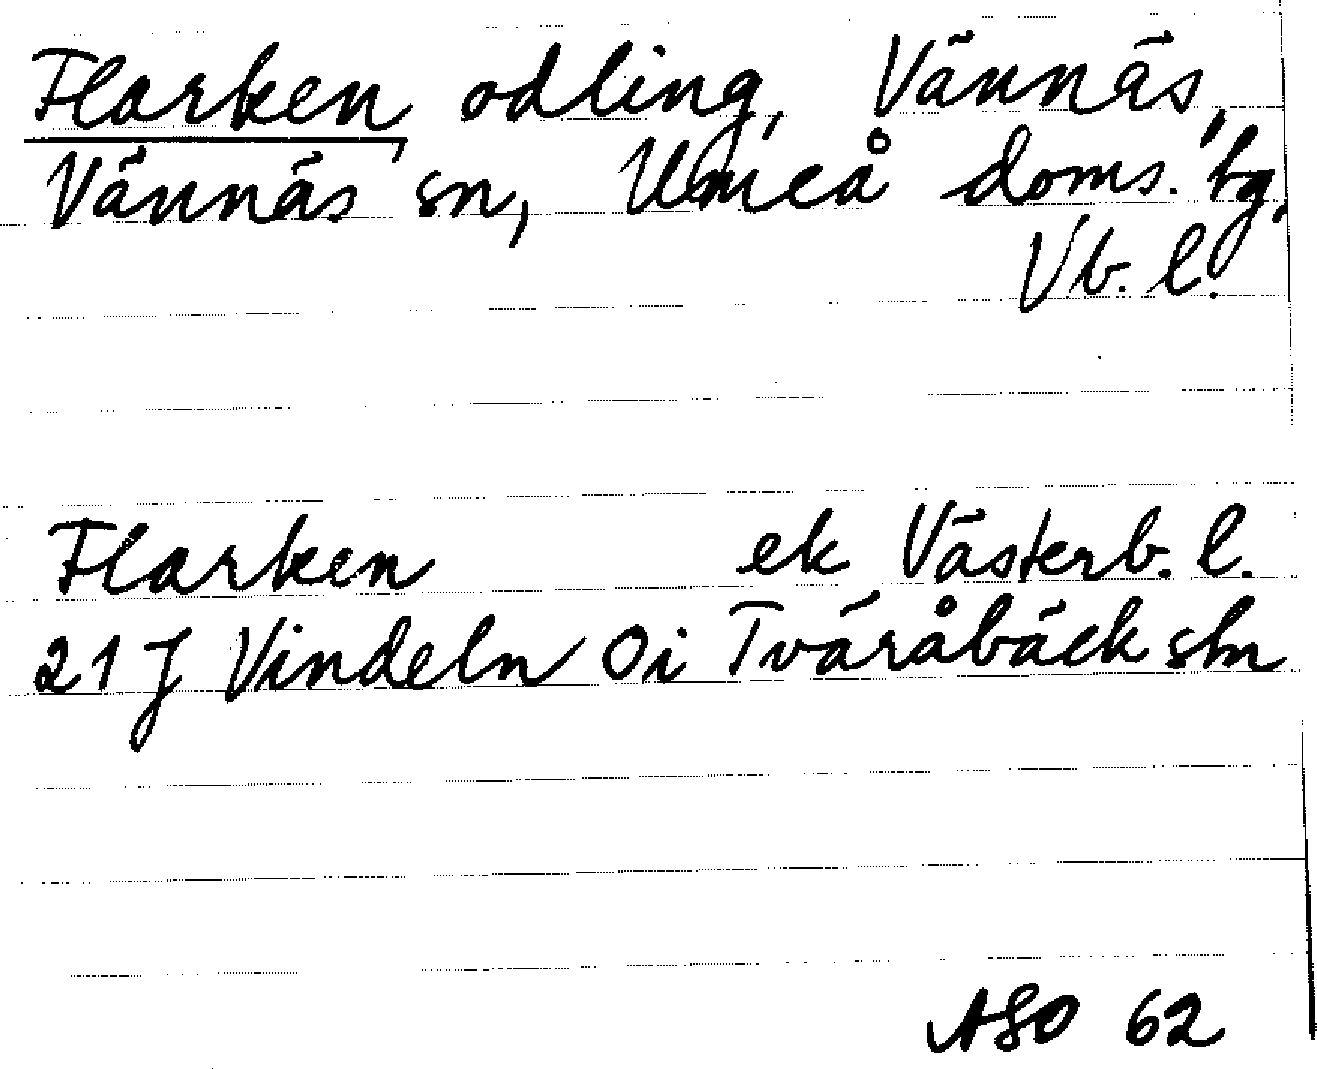 Flarken, odling, Vännäs,
Vännäs sn, Umeå doms. tg,
Vb. l.
Flarken ek Västerb. l.
21 J Vindeln Oi Tväråbäck stn
ASO 62